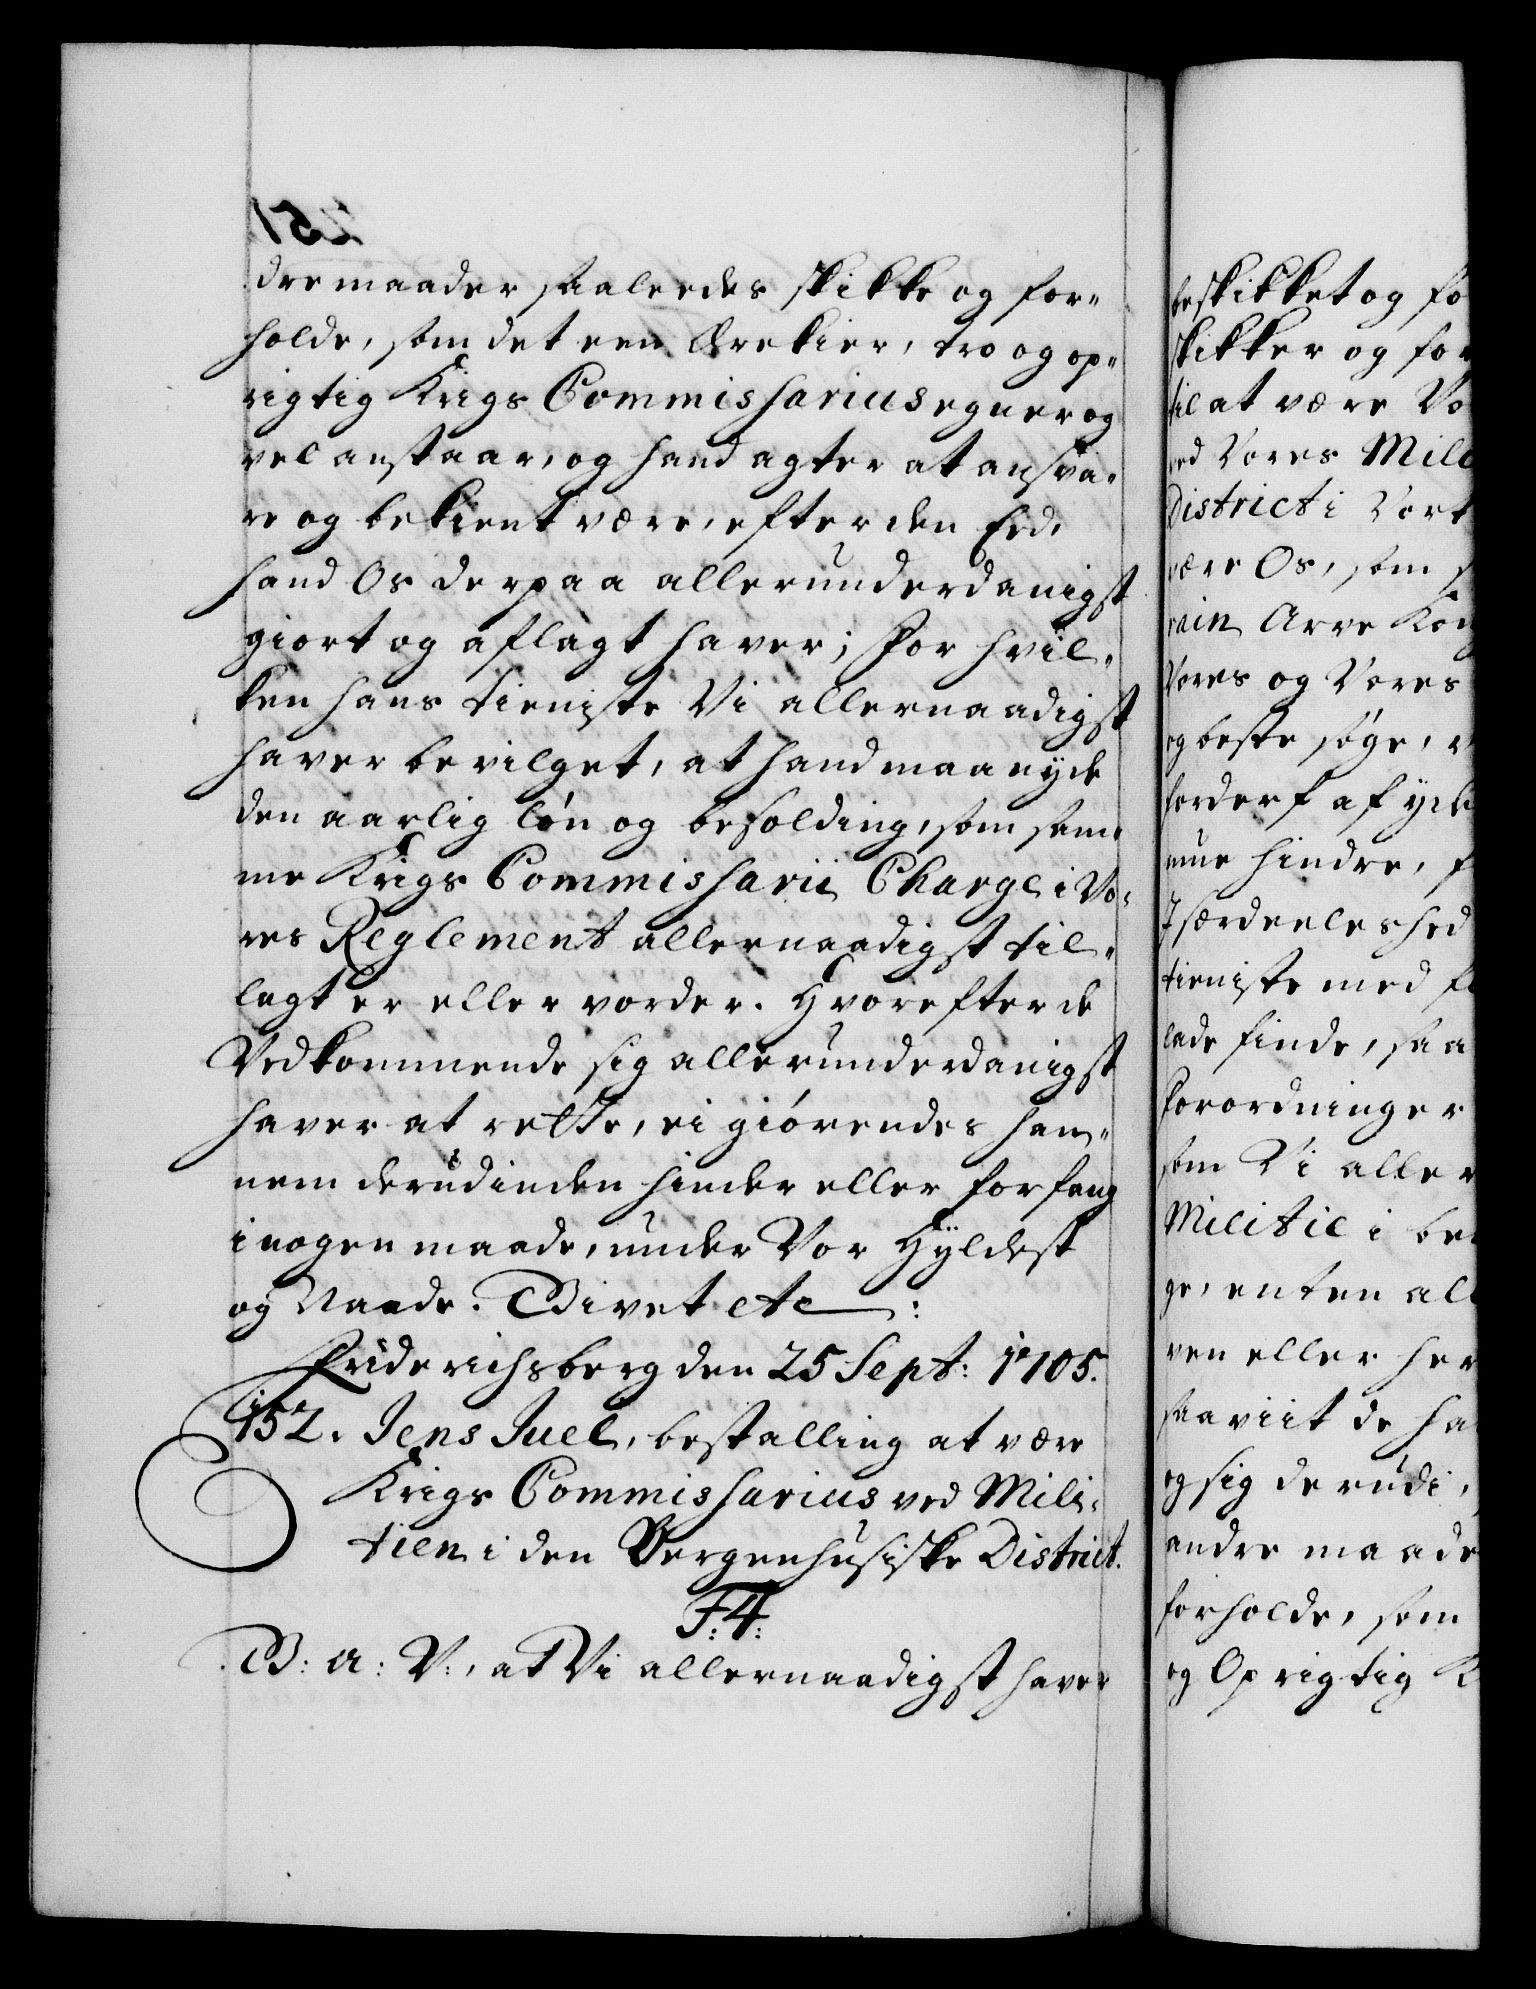 dre maader saaleedes skikke og for-
holde, som det een Ærekier, tro og op-
rigtig Krigs Commissarius egner og
vel anstaar, og hand agter at ansva-
re og bekient være, efter den Eed,
hand Os derpaa allerunderdanigst
giort og aflagt haver; For hvil-
ken hans tieniste Vi allernaadigst
haver bevilget, at hand maa nyde
den aarlig løn og besolding, som sam-
me Krigs Commissarii Charge i Vo-
res Reglement allernaadigst til-
lagt er eller vorder. Hvorefter de
Vedkommende sig allerunderdanigst
haver at rette, ei giørendes han-
nem derudinden hinder eller forfang
i nogen maade, under Vor Hyldest
og Naade. Givet etc:
Friderichsberg den 25 Sept: 1705.
152. Jens Juel, bestalling at være
Krigs Commissarius ved Mili-
tien i den Bergenhusiske District.
F: 4:
G: A: V:, at Vi allernaadigst haver
beskikket og fo
skikker og for
til at være Vo
ved Vores Mili
District i Vort
være Os, som
rain Arve Kong
Vores og Vores
og beste søge,
forderf af yde
mue hindre, f
Jsærdeeleshed
tieniste med fl
lade finde, saa
Forordninger
som Vi aller
Militie i be
ge, enten al
ven eller her
saaviit de ha
og sig derudi,
andre maade
forholde, som
og Oprigtig K